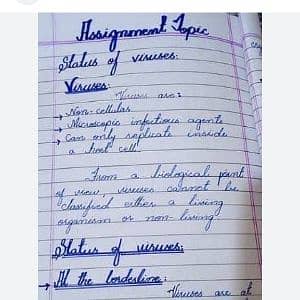 Assignment Topic
Status of viruses:
Viruses:
Viruses are:
→ Non-cellular
→ Microscopic infectious agents
→ Can only replicate inside
a host cell.
From a biological point
of view, viruses cannot be
classified either a living
organism or non-living
Status of viruses:
→ At the borderline:
Viruses are at